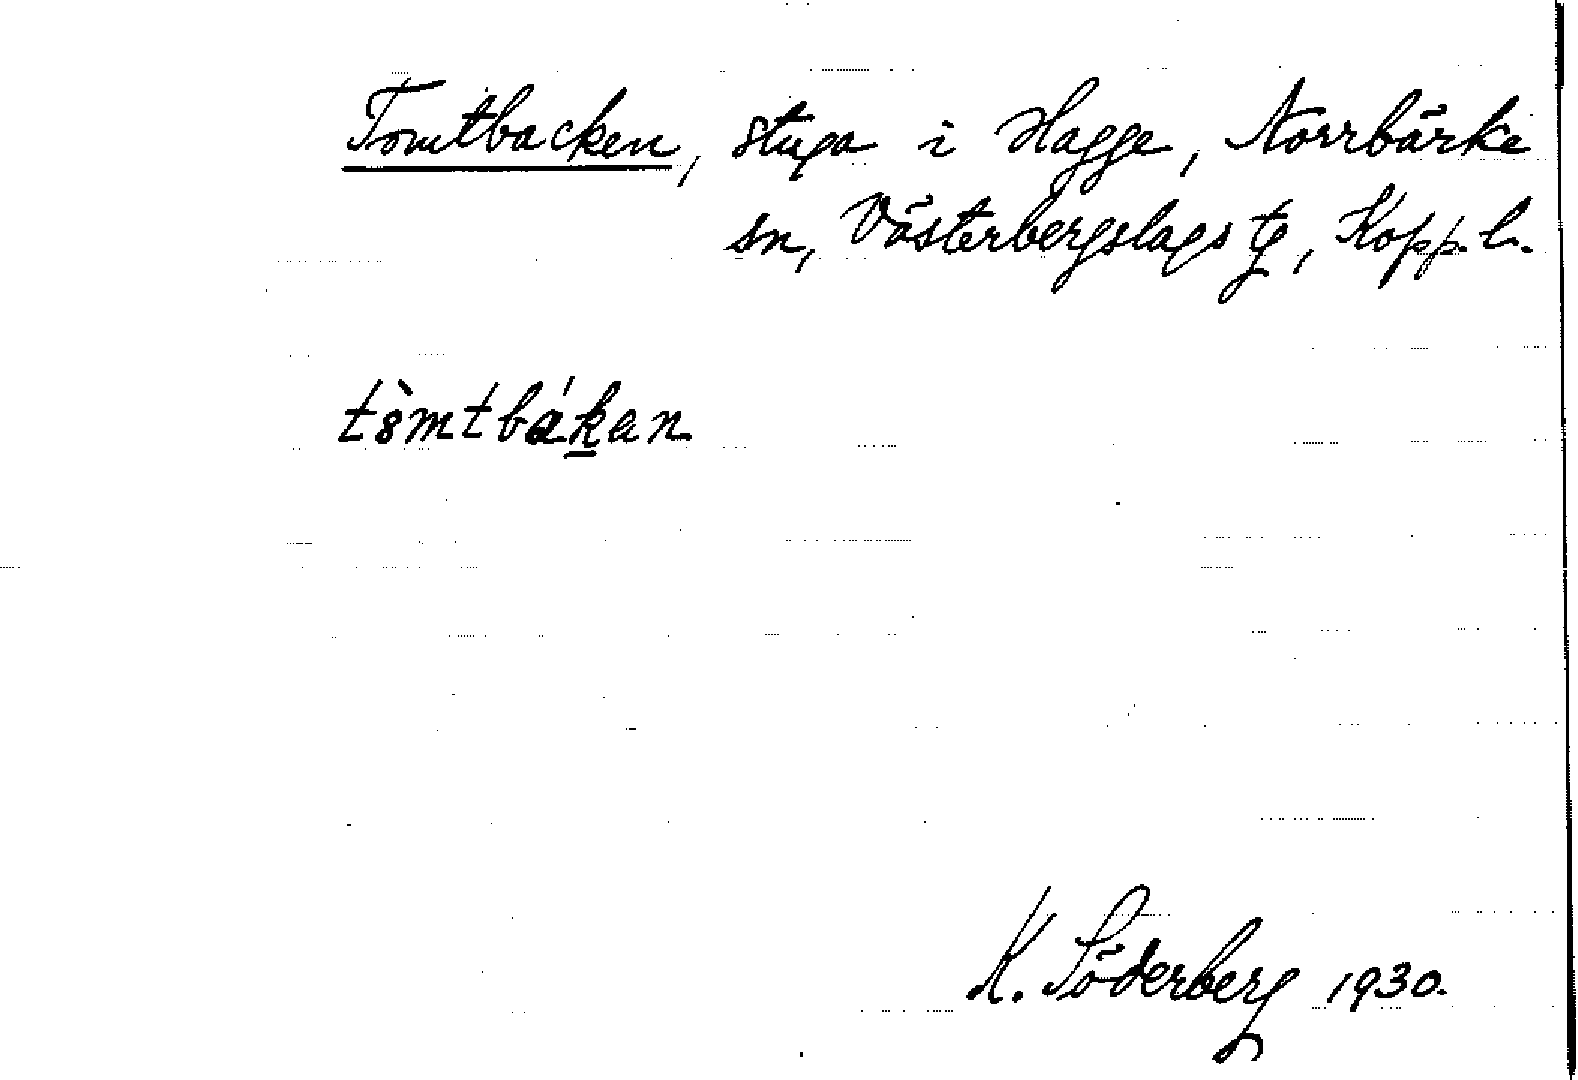 Tomtbacken, stuga i Hagge, Norrbärke
sn, Västerbergslags tg, Kopp. l.
tòmtbákan
K. Söderberg 1930.